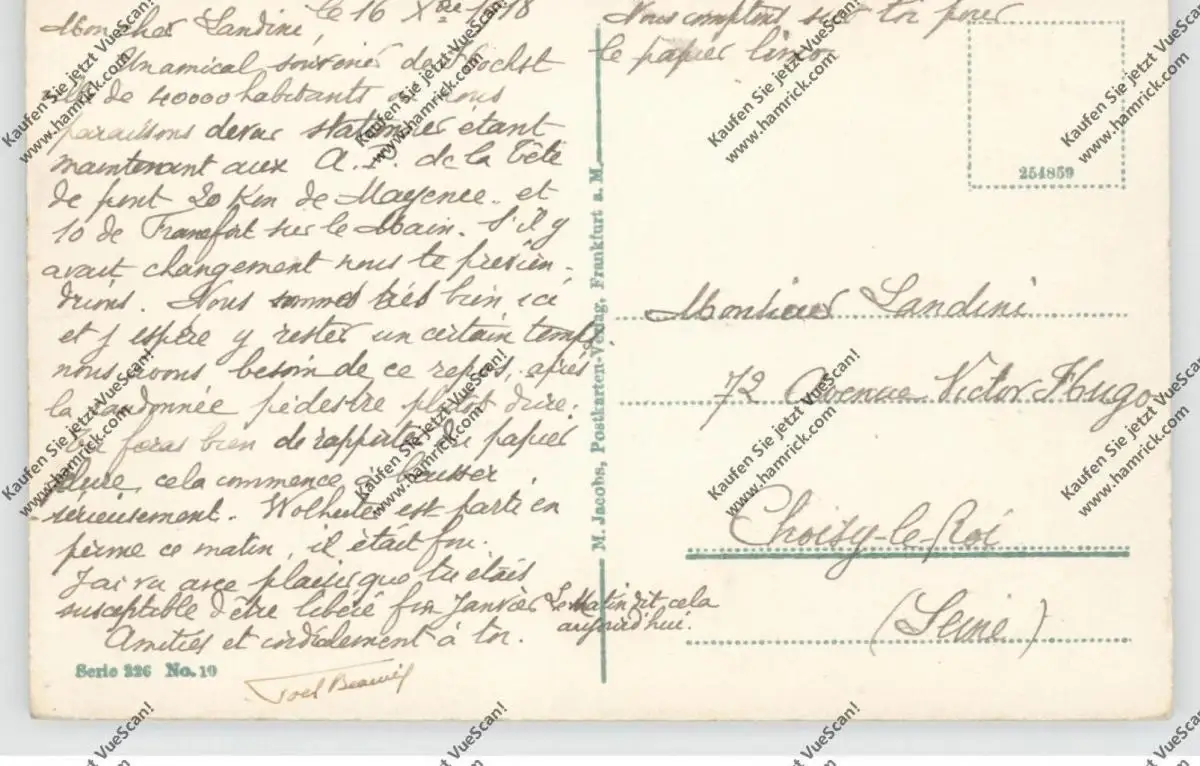 le 16 Xbre 1918
Mon cher Landini,
Un amical souvenir de Hochst
ville de 40000 habitants où nous
paraissons devoir stationner étant
maintenant aux A.P. de la tête
de pont 20 Km de Mayence. et
10 de Francfort sur le Main. S'il y
avait changement nous te prévien-
drions. Nous sommes très bien ici
et j'espère y rester un certain temps
nous avons besoin de ce repos, après
la randonnée pédestre plutôt dure.
Tu feras bien de rapporter du papier
cela commence à baisser
sérieusement. Wolhuter est parti en
perme ce matin, il était fou.
J'ai vu avec plaisir que tu étais
susceptible d'être libéré fin Janvier Le Matin dit cela
aujourd'hui.
Amitiés et cordialement à toi.
Serie 226 No. 10
M. Jacobs, Postkarten-Verlag, Frankfurt a. M.
Nous comptons sur toi pour
le papier
254859
Monsieur Landini
72 Avenue Victor Hugo
Choisy-le-Roi
(Seine)
Kaufen Sie jetzt VueScan!
www.hamrick.com